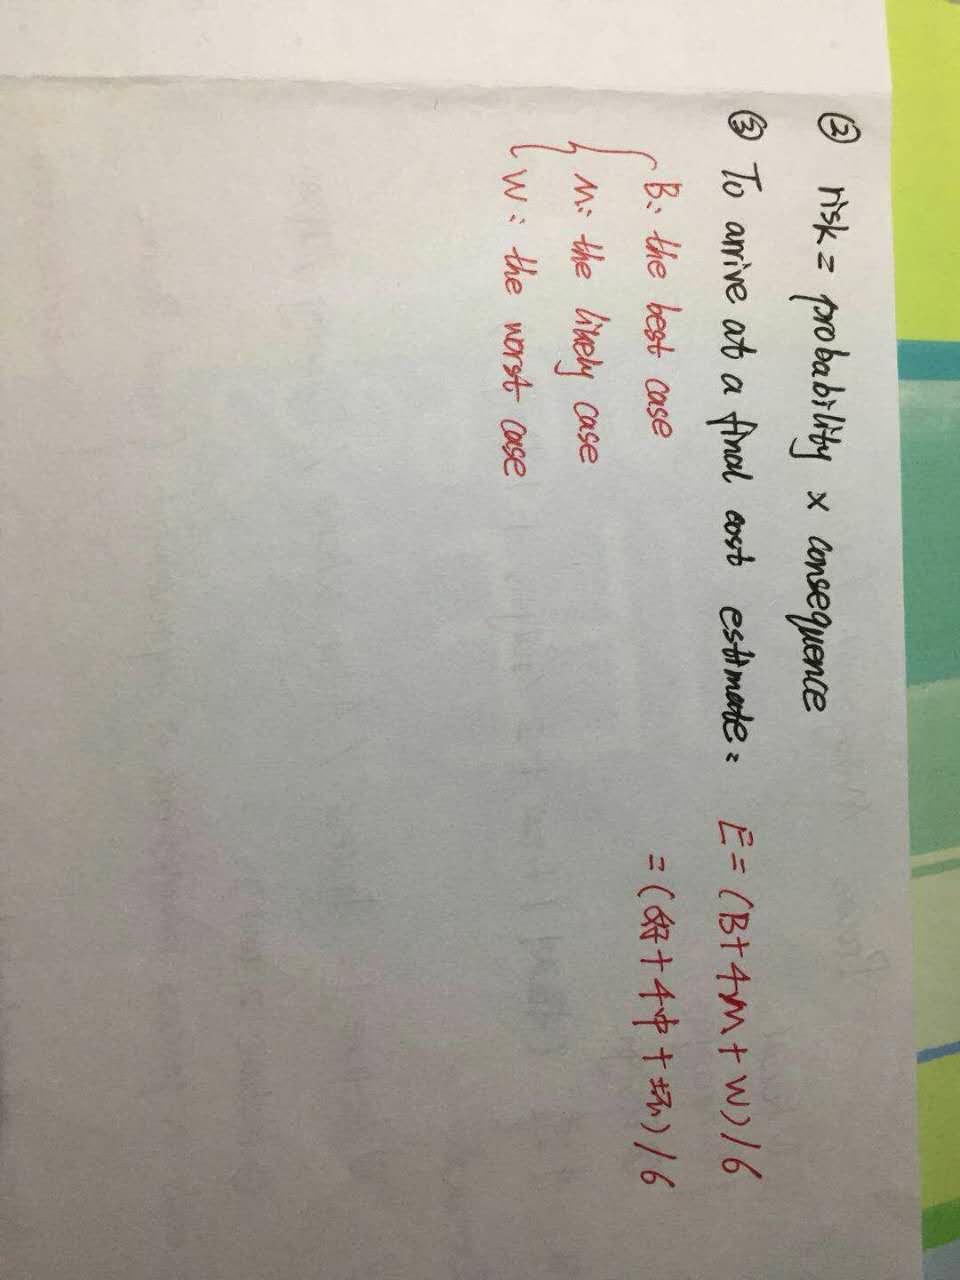 ② risk = probability × consequence
③ To arrive at a final cost estimate: E = (B+4M+W)/6
= (好+4中+坏)/6
B: the best case
M: the likely case
W: the worst case